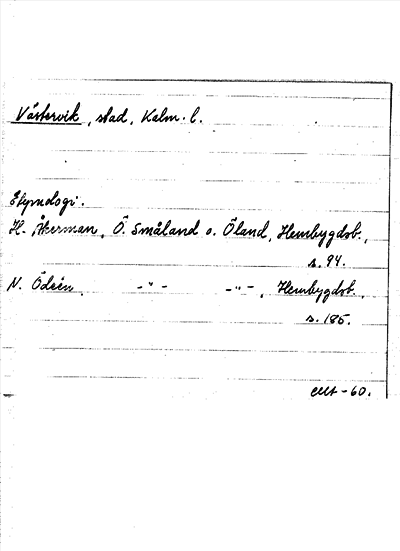 Västervik, stad, Kalm. l.
Etymologi.
H. Åkerman, Ö. Småland o. Öland, Hembygdsb.,
s. 94.
N. Ödéen, -"- -"-, Hembygdsb.,
s. 185.
-60.